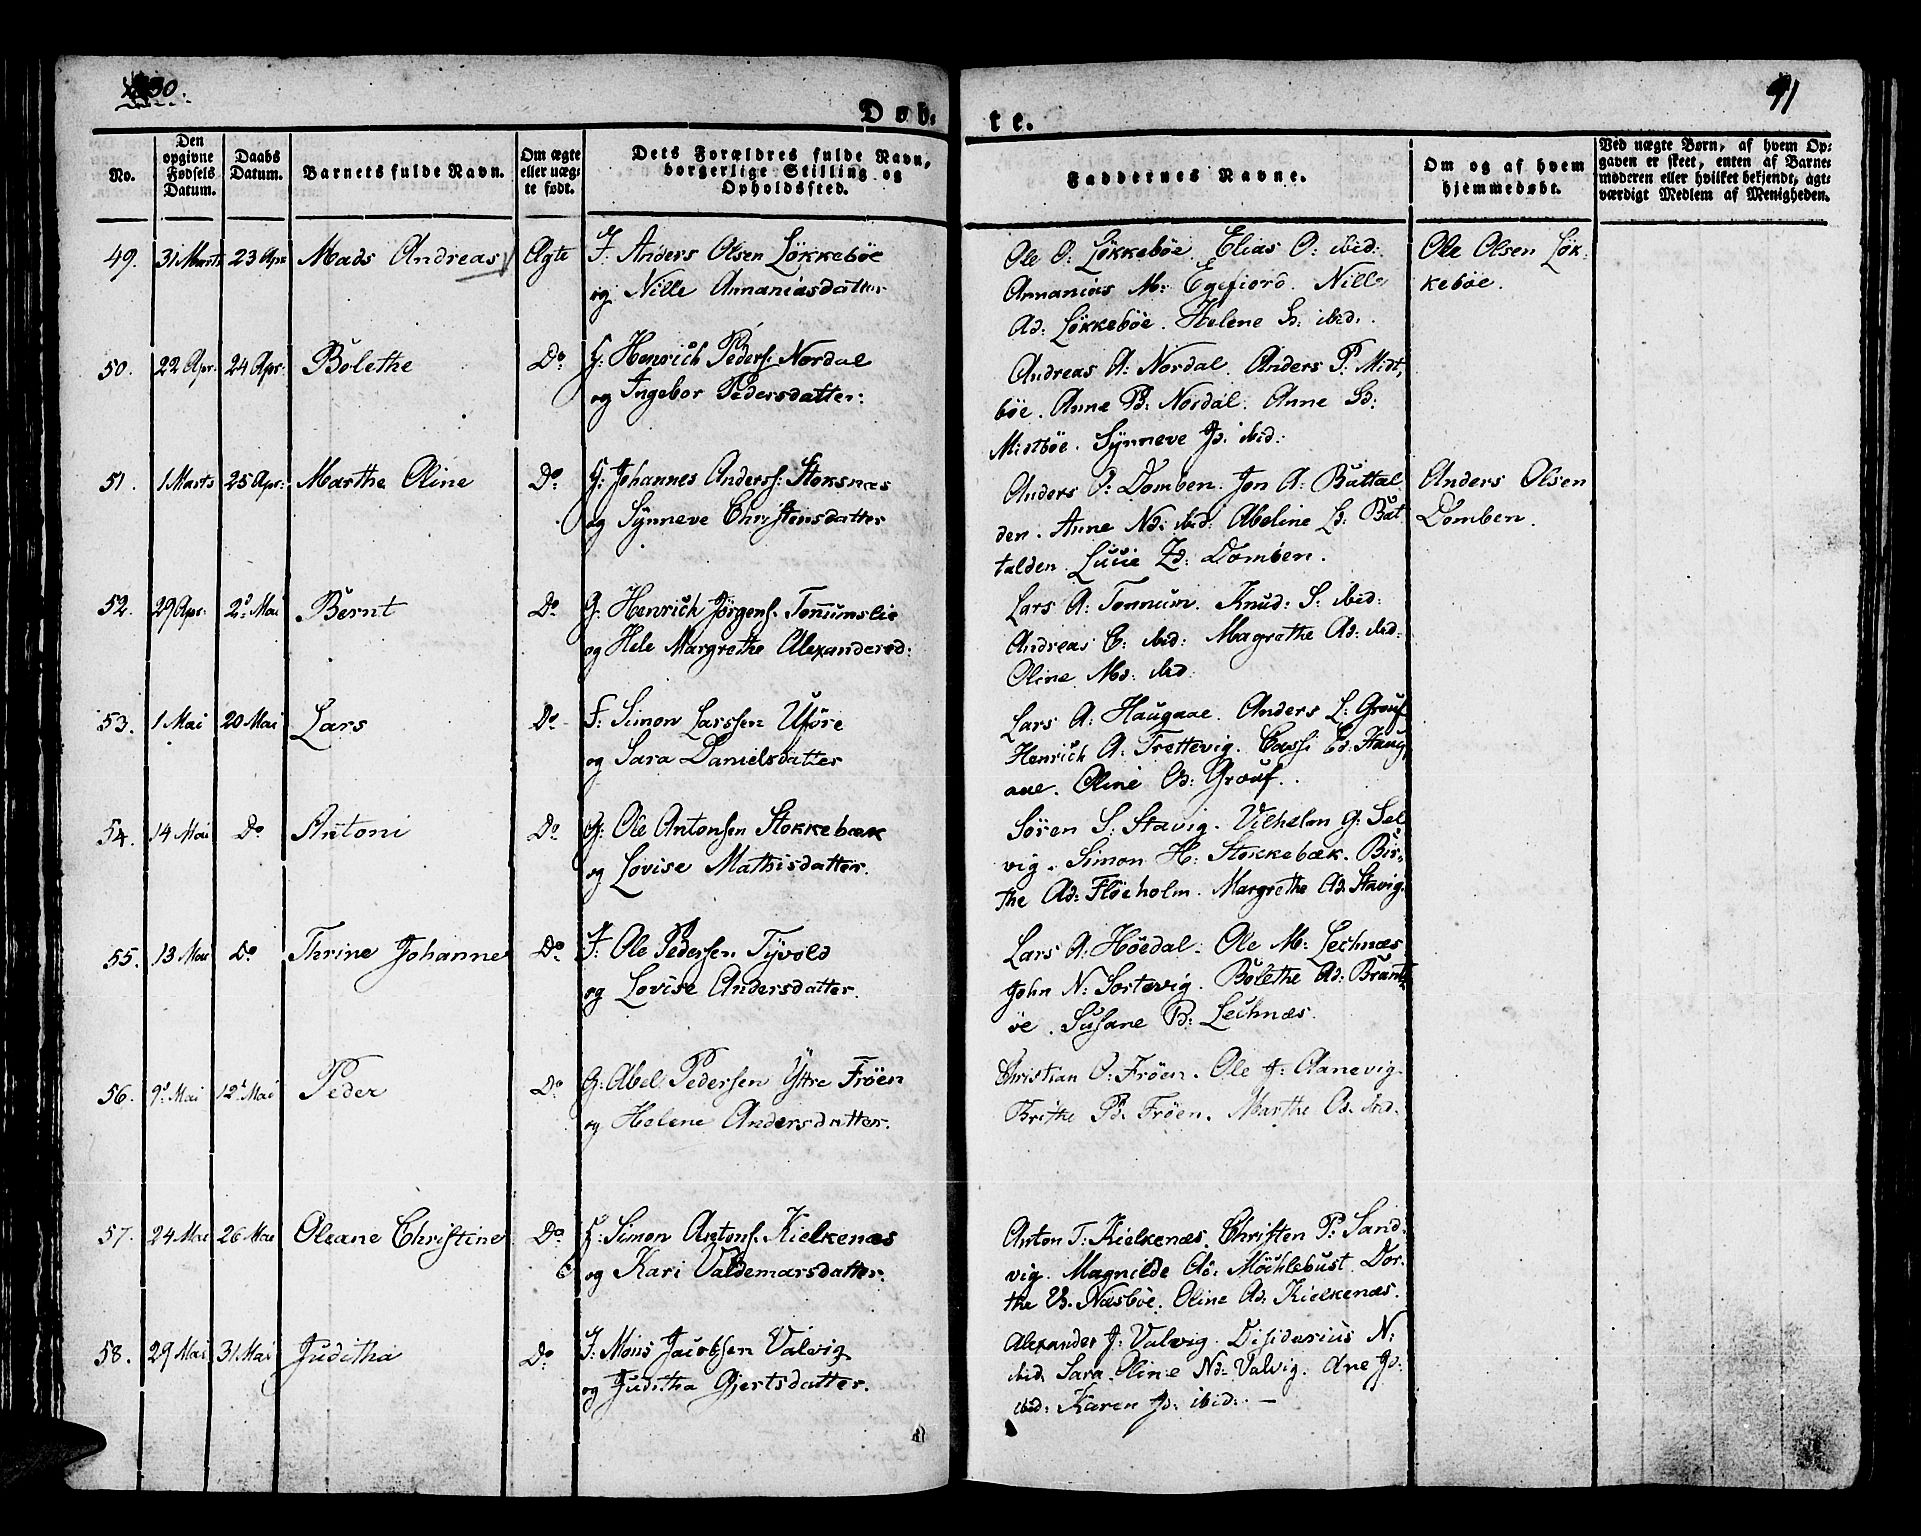 1830.
91
Døb-
te.
No.
Den opgivne Fødsels Datum.
Daabs Datum.
Barnets fulde Navn.
Om ægte eller uægte født.
Dets Forældres fulde Navn, borgerlige Stilling og Opholdsted.
Faddernes Navne.
Om og af hvem hjemmedøbt.
Ved uægte Børn, af hvem Opgaven er skeet, enten af Barnemoderen eller hvilket bekjendt, agtværdigt Medlem af Menigheden.
49. 31 Marts 23 Apr Mads Andreas Ægte F: Anders Olsen Løkkebøe
og Nille Annaniasdatter
Ole O: Løkkebøe. Elias O: ibid:
Annanias M: Egefiord. Nille
Ad: Løkkebøe. Helene Sd: ibid:.
Ole Olsen Løk-
kebøe.
50. 22 Apr. 24 Apr: Bolethe Do G: Henrich Peders: Nordal
og Ingebor Pedersdatter:
Andreas A: Nordal. Anders P: Midt,
bøe. Anne Pd: Nordal. Anne Sd:
Midtbøe. Synneve Jd: ibid:
51. 1 Marts 25 Apr: Marthe Oline Do: G: Johannes Anders: Stoksnæs
og Synneve Christensdatter
Anders O: Domben. Jon A: Battal
den. Anne Nd: ibid: Abeline Ld: Bat
talden. Lucie Zd: Domben.
Anders Olsen
Domben.
52. 29 Apr: 2d Mai Bernt Do G: Henrich Jørgens. Tonnumslie
og Hele Margrethe Alexandersd:
Lars A: Tonnum. Knud: S: ibid:
Andreas C: ibid: Magrethe Ad: ibid:
Oline Md: ibid:
53. 1 Mai 20 Mai Lars Do F: Simon Larssen Uføre
og Sara Danielsdatter
Lars A: Haugaae. Anders L: Grouf
Henrich A: Trettevig. Cassi Ed: Haug,
aae. Oline Od: Grouf.
54. 14 Mai Do Antoni Do G: Ole Antonsen Stokkebæk
og Lovise Mathisdatter.
Søren S: Stavig. Vilhelm G: Sel
vig. Simon H: Stokkebæk. Bir-
the Ad: Fløeholm. Margrethe Ad: Stavig.
55. 13 Mai Do Thrine Johanne Do F: Ole Pedersen Tyvold
og Lovise Andersdatter.
Lars A: Høedal. Ole M: Lechnæs
John N: Sortevig. Bolethe Ad: Brant,
øe. Susane Pd: Lechnæs.
56. 9d Mai 12t Mai Peder Do G: Abel Pedersen Yttre Frøen
og Helene Andersdatter.
Christian O: Frøen. Ole J: Aanevig.
Brithe Pd: Frøen. Marthe Od: ibid.
57. 24 Mai 26 Mai Oleane Christine Do G: Simon Antons. Kielkenæs
og Kari Valdemarsdatter.
Anton T: Kielkenæs. Christen P: Sand-
vig. Magnilde Ad: Mochlebust. Dor-
the Næsbøe. Oline Ad: Kielkenæs.
58. 29 Mai 31 Mai Juditha Do: J: Mons Jacobsen Valvig
og Juditha Gjertsdatter.
Alexander J: Valvig. Disidærius N:
ibid. Sara Oline Nd: Valvig. Ane Jd:
ibid: Karen Jd: ibid:. —